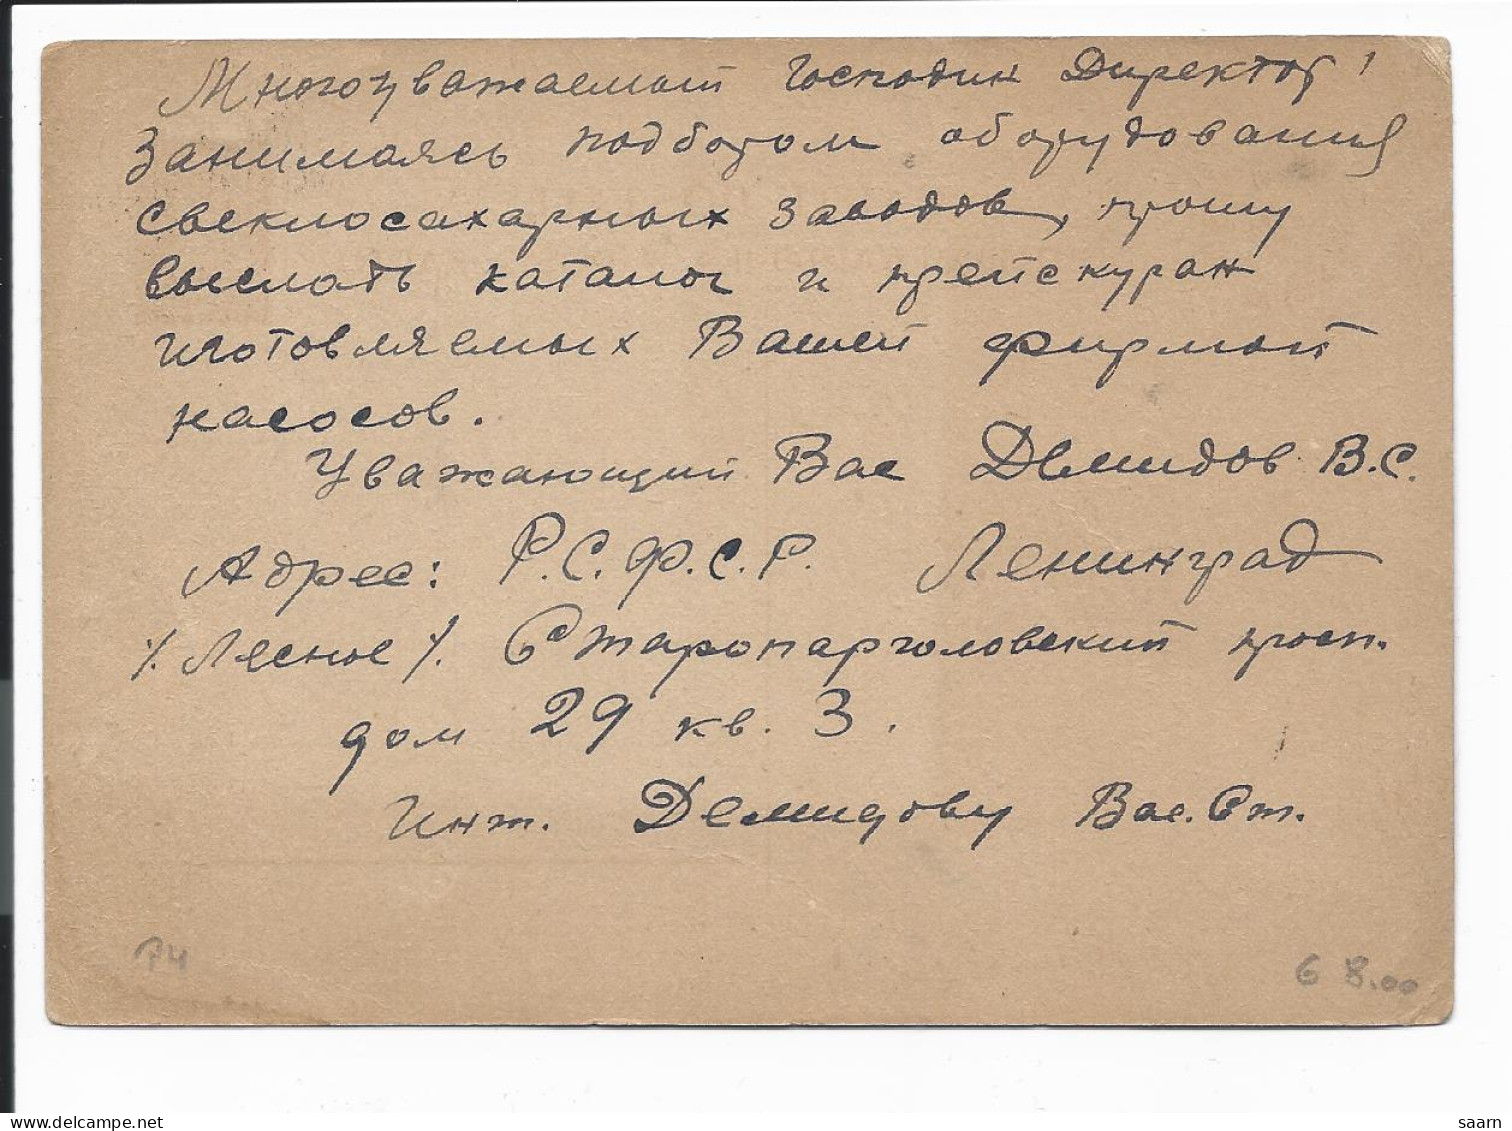 Многоуважаемый Господин Директор!
Занимаясь подбором оборудования
свеклосахарных заводов, прошу
выслать каталог и прейскуран
изготовляемых Вашей фирмой
насосов.
Уважающий Вас Демидов В.С.
Адрес: Р.С.Ф.С.Р. Ленинград
/. Лесное /. Старопарголовский просп.
дом 29 кв. 3.
Инж. Демидову Вас. Ст.
14
6 8.00
saarn
delcampe.net